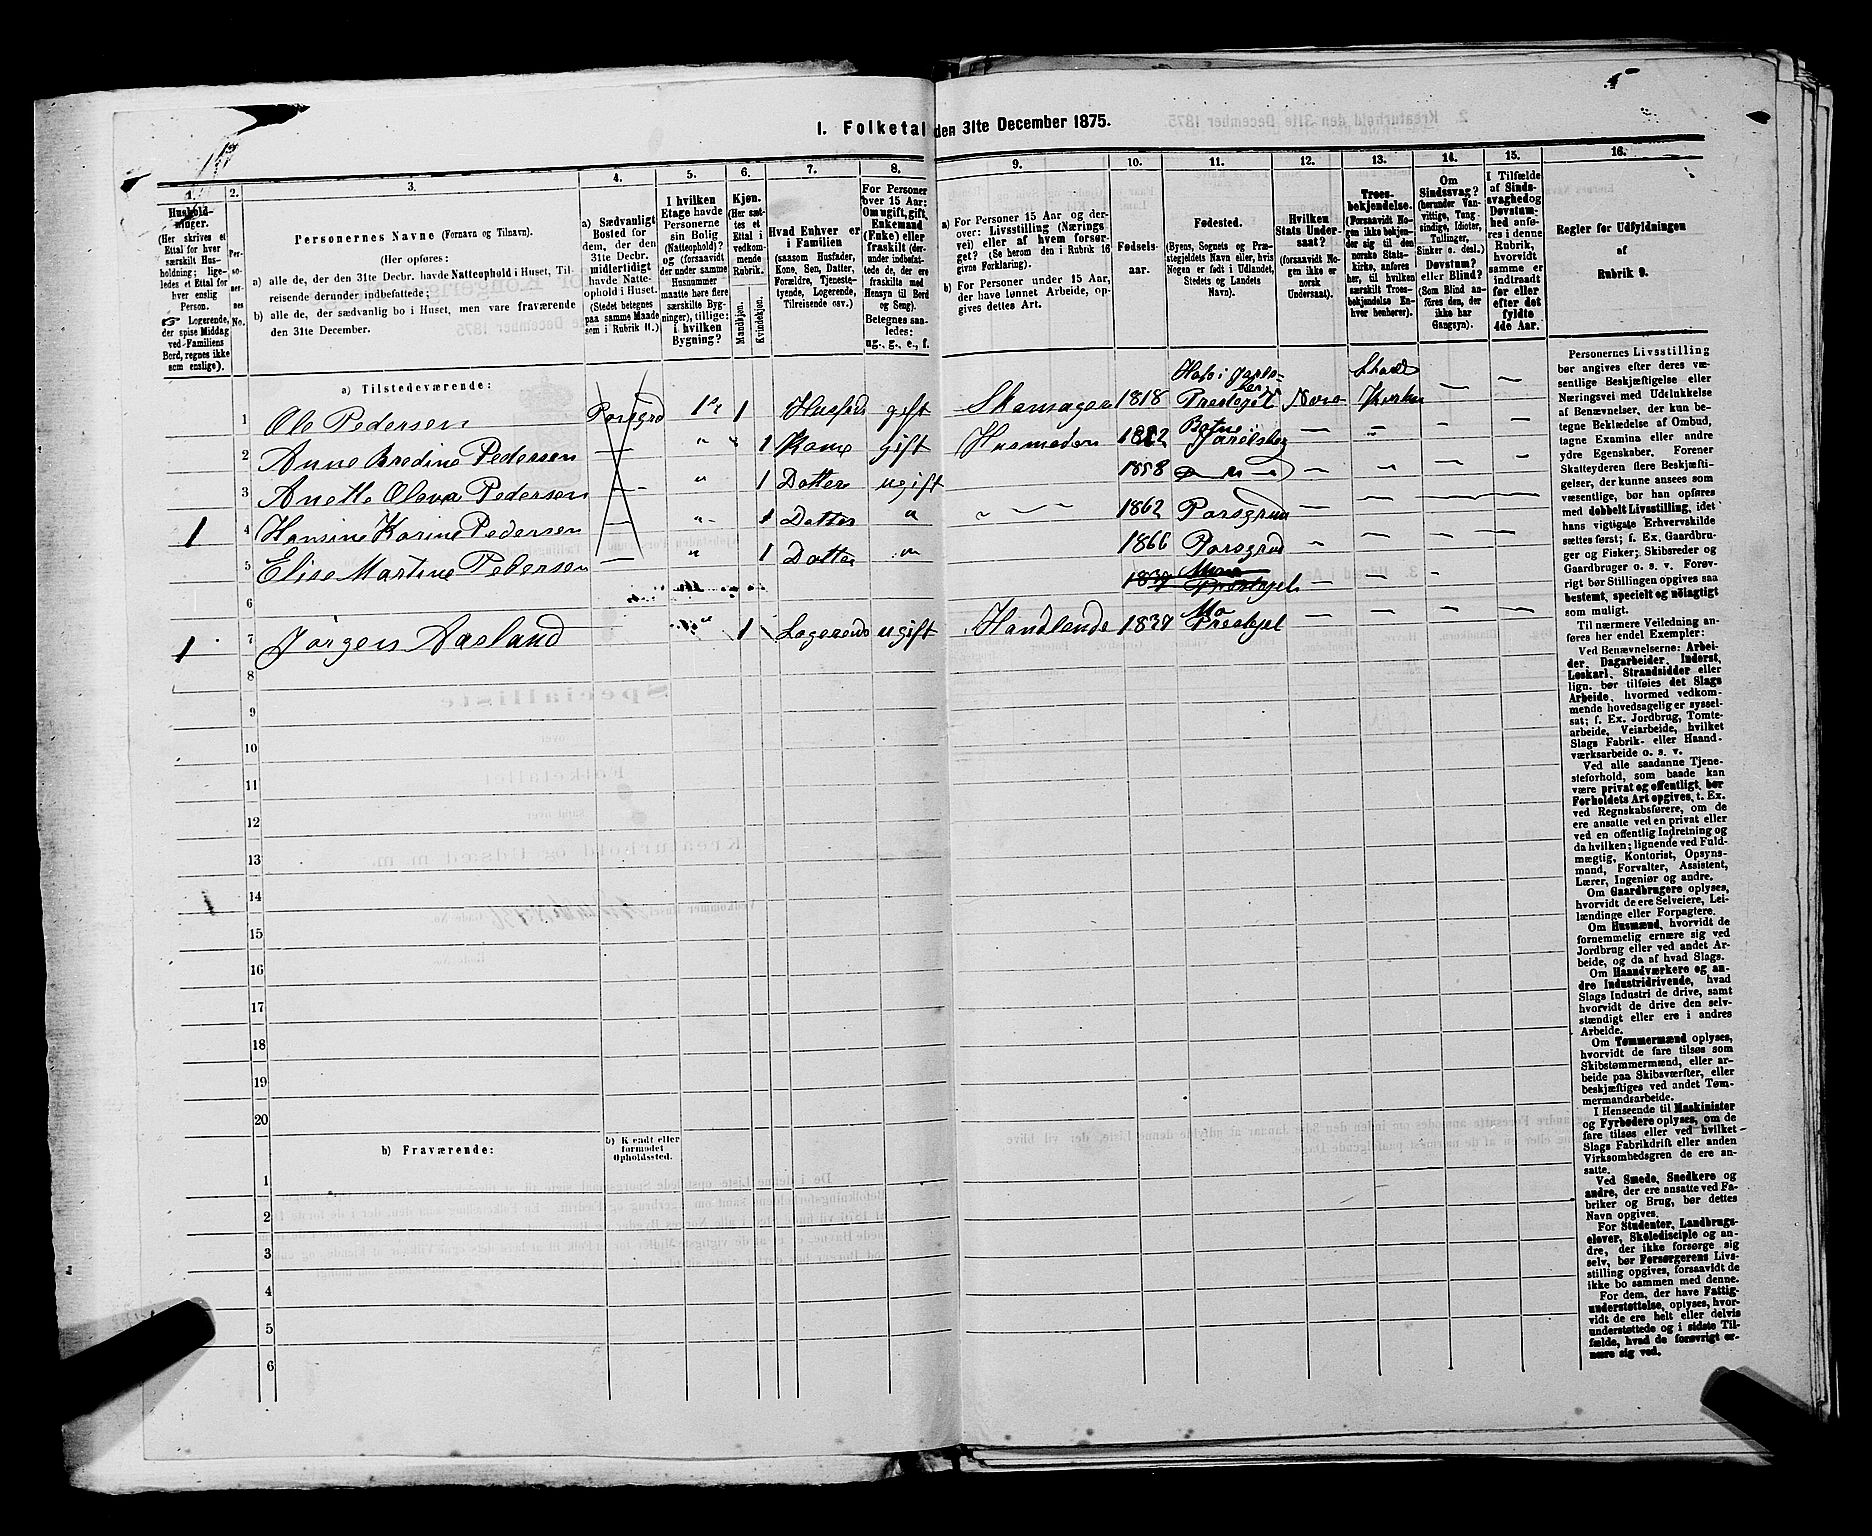 I. Folketal den 31te December 1875.
1. 2. 3. 4. 5. 6. 7. 8. 9. 10. 11. 12. 13. 14. 15. 16.
Hushold-
ninger.
(Her skrives et
Ettal for hver
særskilt Hus-
holdning; lige-
ledes et Ettal for
hver enslig
Person.
☞ Logerende,
der spise Middag
ved Familiens
Bord, regnes ikke
som enslige).
Per-
so-
ner-
nes
No.
Personernes Navne (Fornavn og Tilnavn).
(Her opføres:
a) alle de, der den 31te Decbr. havde Natteophold i Huset, Til-
reisende derunder indbefattede;
b) alle de, der sædvanlig bo i Huset, men vare fraværende
den 31te December.
a) Sædvanligt
Bosted for
dem, der den
31te Decbr.
midlertidigt
havde Natte-
ophold i Huset.
(Stedet betegnes
paa samme Maade
som i Rubrik 11.)
I hvilken
Etage havde
Personerne
sin Bolig
(Natteophold)?
og (forsaavidt
der under samme
Husnummer
maatte høre flere
særskilte Byg-
ninger), tillige:
i hvilken
Bygning?
Kjøn.
(Her sæt-
tes et
Ettal i
vedkom-
mende
Rubrik.
Mandkjøn.
Kvindekjøn.
Hvad Enhver er
i Familien
(saasom Husfader,
Kone, Søn, Datter,
Forældre, Tjeneste-
tyende, Logerende,
Tilreisende osv.)
For Personer
over 15 Aar:
Om ugift, gift,
Enkemand
(Enke) eller
fraskilt (der-
under indbefat-
tede de, der ere
fraskilte med
Hensyn til Bord
og Seng).
Betegnes saa-
ledes:
ug., g., e., f.
a) For Personer 15 Aar og der-
over: Livsstilling (Nærings
vei) eller af hvem forsør-
get? (Se herom den i Rubrik 16
givne Forklaring).
b) For Personer under 15 Aar,
der have lønnet Arbeide, op-
gives dettes Art.
Fødsels-
aar.
Fødested.
(Byens, Sognets og Præ-
stegjeldets Navn eller, hvis
Nogen er født i Udlandet,
Stedets og Landets
Navn).
Hvilken
Stats Under-
saat?
(forsaavidt No-
gen ikke er
norsk
Undersaat).
Troes-
bekjendelse.
(Forsaavidt No-
gen ikke bekjen-
der sig til den
norske Stats-
kirke, anføres
her, til hvilken
særskilt Troes-
bekjendelse En-
hver henhører).
Om
Sindssvag?
(herunder Van-
vittige, Tung-
sindige, Idioter,
Tullinger,
Sinker o. desl.)
Døvstum?
eller Blind?
(Som Blind an-
føres den, der
ikke har
Gangsyn).
I Tilfælde
af Sinds-
svaghed og
Døvstum-
hed anfø-
res i denne
Rubrik,
hvorvidt
samme er
indtraadt
før eller
efter det
fyldte
4de Aar.
Regler for Udfyldningen
af
Rubrik 9.
a) Tilstedeværende:
1 Ole Pedersen 1 gift 1818
2 Anne Bredine Pedersen " 1 Kone gift
3 Anette Olava Pedersen " 1 Datter ugift 1858
1 4 Hansine Karine Pedersen " 1 Datter " 1862 Porsgrund
5 Elise Martine Pedersen " 1 Datter " 1866 Porsgrund
6
1 7 Jørgen Aasland 1 Logerende ugift Handlende 1837
8
9
10
11
12
13
14
15
16
17
18
19
20
b) Fraværende:
b) Kjendt eller
formodet
Opholdssted.
1
2
3
4
5
6
Personernes Livsstilling
bør angives efter deres væ-
sentlige Beskjæftigelse eller
Næringsvei med Udelukkelse
af Benævnelser, der kun be-
tegne Beklædelse af Ombud,
tagne Examina eller andre
ydre Egenskaber. Forener
Skatteyderen flere Beskjæfti-
gelser, der kunne ansees som
væsentlige, bør han opføres
med dobbelt Livsstilling, idet
hans vigtigste Erhvervskilde
sættes først; f. Ex. Gaardbru-
ger og Fisker; Skibsreder og
Gaardbruger o. s. v. Forøv-
rigt bør Stillingen opgives saa
bestemt, specielt og nøiagtigt
som muligt.
Til nærmere Veiledning an-
føres her endel Exempler:
Ved Benævnelserne: Arbei-
der, Dagarbeider, Inderst,
Løskarl, Strandsidder eller
lign. bør tilføies det Slags
Arbeide, hvormed vedkom-
mende hovedsagelig er syssel-
sat; f. Ex. Jordbrug, Tomte-
arbeide, Veiarbeide, hvilket
Slags Fabrik- eller Haand-
værksarbeide o. s. v.
Ved alle saadanne Tjene-
steforhold, som baade kan
være privat og offentligt, bør
Forholdets Art opgives, t. Ex.
ved Regnskabsførere, om de
ere ansatte ved en privat eller
ved en offentlig Indretning og
da hvilken; lignende ved Fuld-
mægtig, Kontorist, Opsyns-
mand, Forvalter, Assistent,
Lærer, Ingeniør og andre.
Om Gaardbrugere oplyses,
hvorvidt de ere Selveiere, Lei-
lændinge eller Forpagtere.
Om Husmænd, hvorvidt de
fornemmelig ernære sig ved
Jordbrug eller ved andet Ar-
beide, og da af hvad Slags.
Om Haandværkere og an-
dre Industridrivende, hvad
Slags Industri de drive, samt
hvorvidt de drive den selv-
stændigt eller ere i andres
Arbeide.
Om Tømmermænd oplyses,
hvorvidt de fare tilsøs som
Skibstømmermænd, eller ar-
beide paa Skibsværfter, eller
beskjæftiges ved andet Tøm-
mermandsarbeide.
I Henseende til Maskinister
og Fyrbødere oplyses, om de
fare tilsøs eller ved hvilket
Slags Fabrikdrift eller anden
Virksomhedsgren de ere an-
satte.
Ved Smede, Snedkere og
andre, der ere ansatte ved Fa-
briker og Brug, bør dettes
Navn opgives.
For Studenter, Landbrugs-
elever, Skoledisciple og an-
dre, der ikke forsørge sig
selv, bør Forsørgerens Livs-
stilling opgives, forsaavidt de
ikke bo sammen med denne.
For dem, der have Fattig-
understøttelse, oplyses, hvor-
vidt de ere helt eller delvis
understøttede og i sidste Til-
fælde, hvad de forøvrigt er-
nære sig ved.